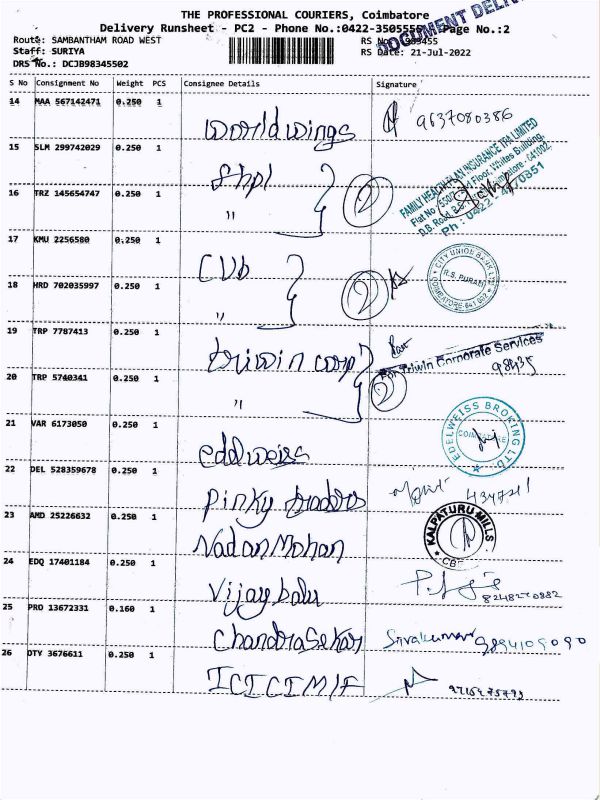 THE PROFESSIONAL COURIERS, Coimbatore
DOCUMENT
Delivery Runsheet - PC2 - Phone No.:0422-350555 Page No.:2
Route: SAMBANTHAM ROAD WEST
Staff: SURIYA RS Date: 21-Jul-2022
DRS No.: DCJB98345502
S No Consignment No Weight PCS Consignee Details Signature
14 MAA 567142471 0.250 1 worldwings 9637080386
15 SLM 299742029 0.250 1 fhpl
FAMILY HEALTH PLAN INSURANCE TPA LIMITED
16 TRZ 145654747 0.250 1 " 2
17 KMU 2256580 0.250 1 CUb
CITY UNION BANK LTD
R.S. PURAM
COIMBATORE-641 002
18 HRD 702035997 0.250 1 " 2
19 TRP 7787413 0.250 1 triwin corp
For Triwin Corporate Services
98435
20 TRP 5740341 0.250 1 " 2
21 VAR 6173050 0.250 1 edelweiss
EDELWEISS BROKING LTD
COIMBATORE
22 DEL 528359678 0.250 1 Pinky traders
23 AMD 25226632 0.250 1 Nadan Mohan
KALPATURU MILLS
CBE
24 EDQ 17401184 0.250 1 Vijay balu
25 PRO 13672331 0.160 1 Chandra Sekar Sivakumar 9894109090
26 DTY 3676611 0.250 1 ICICI M/F